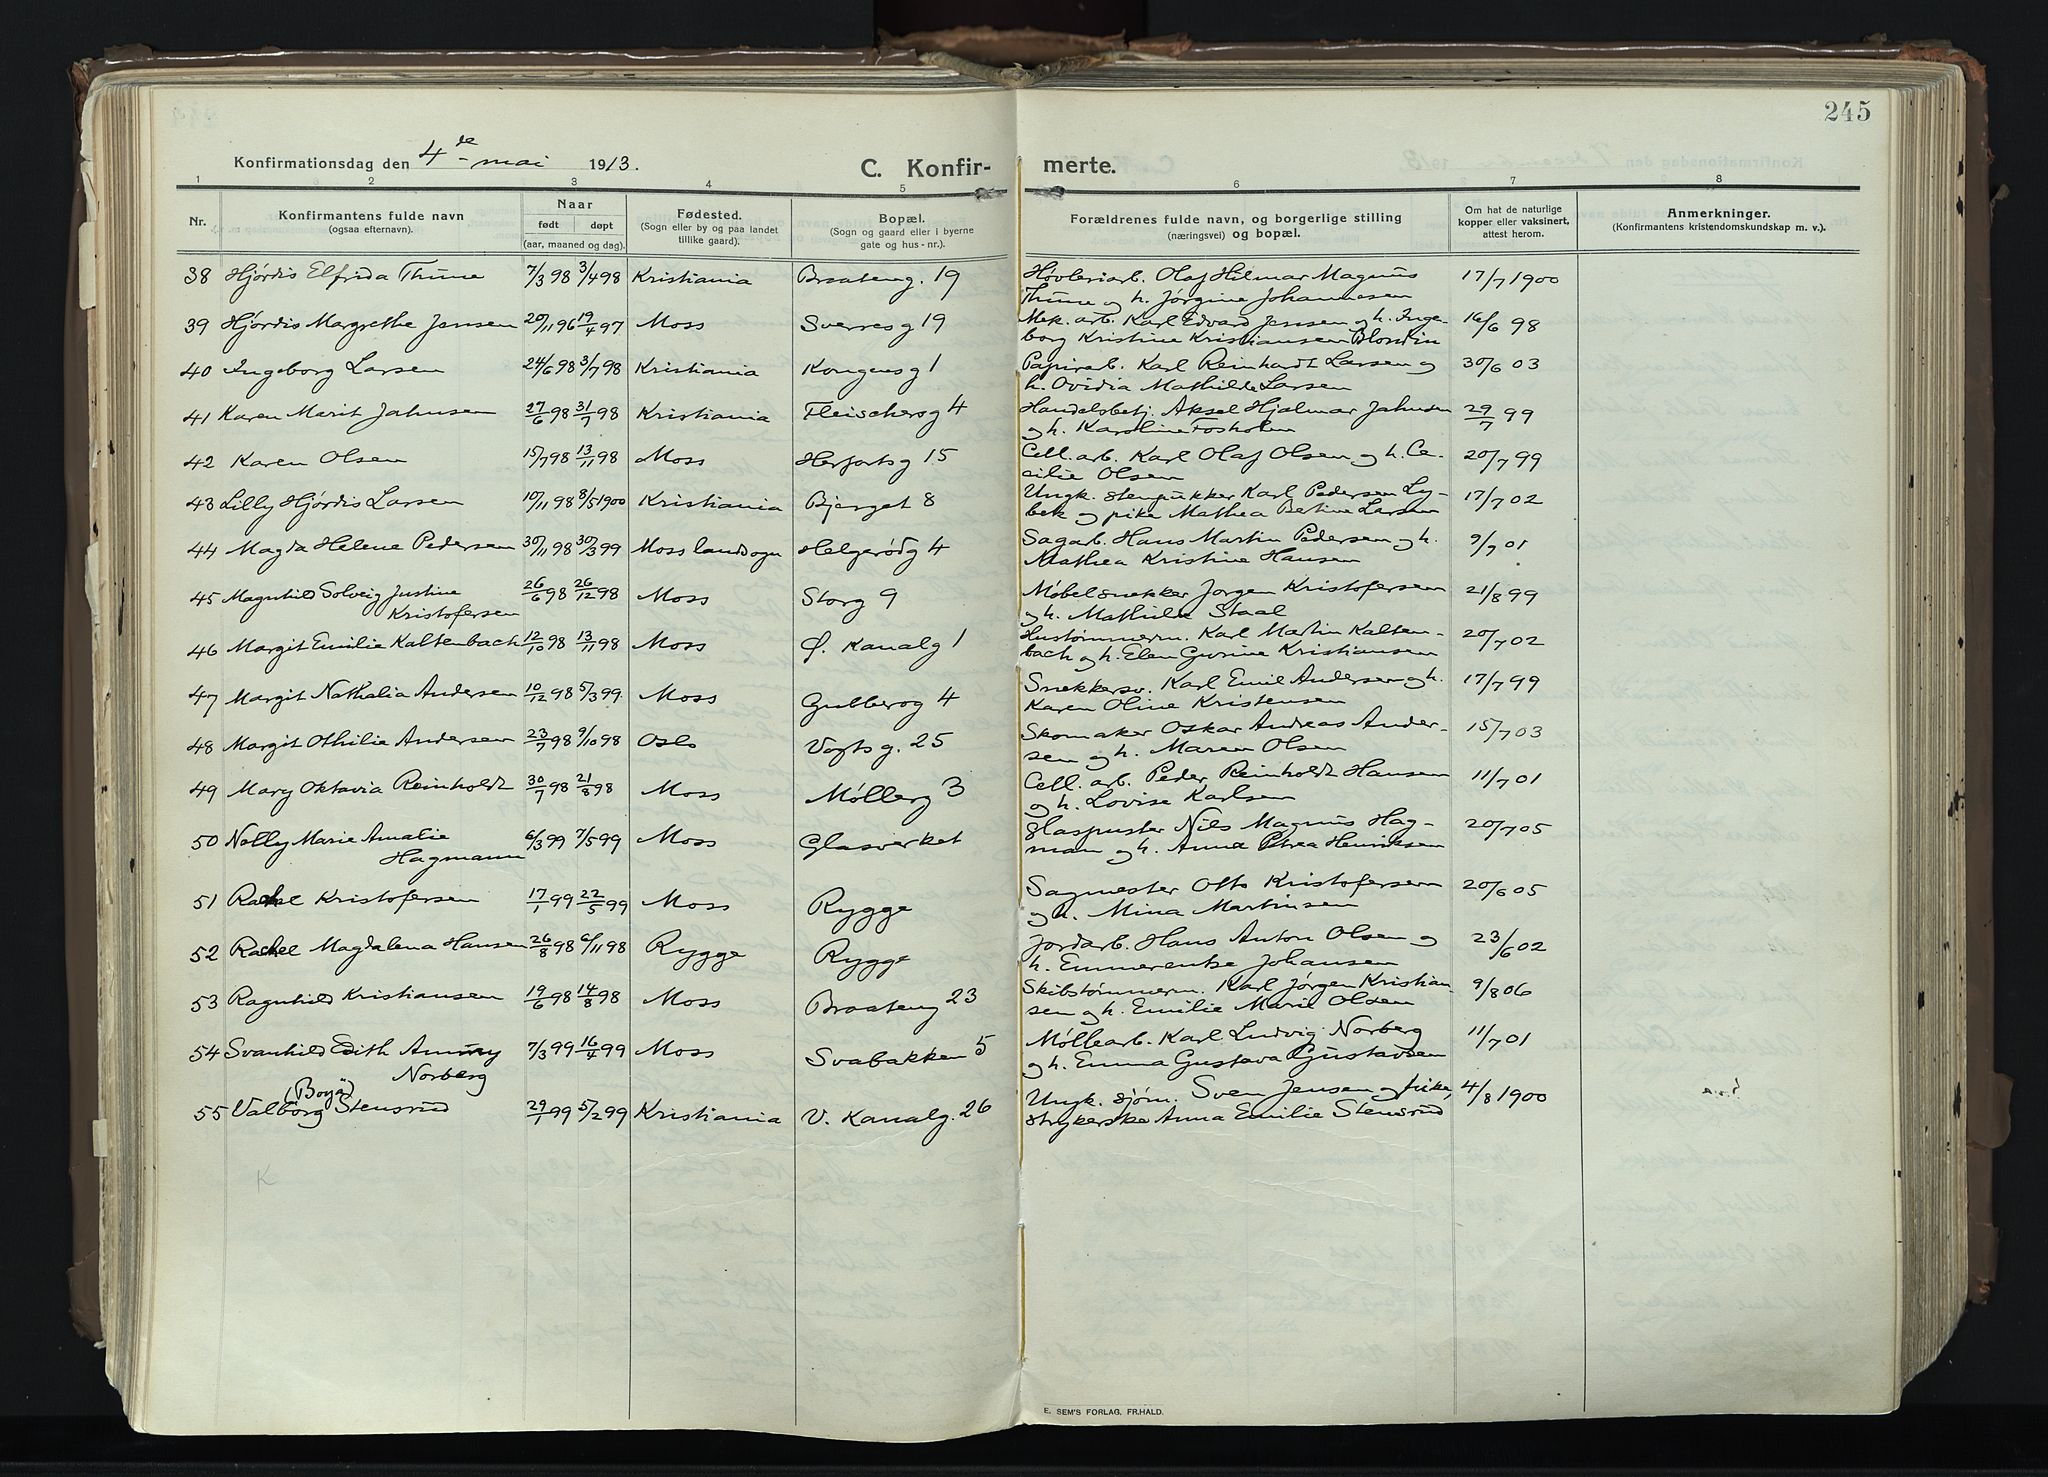 245
Konfirmationsdag den 4de mai 1913.
C. Konfir- merte.
1 2 3 4 5 6 7 8
Nr. Konfirmantens fulde navn (ogsaa efternavn). Naar født døpt (aar, maaned og dag). Fødested. (Sogn eller by og paa landet tillike gaard). Bopæl. (Sogn og gaard eller i byerne gate og hus-nr.). Forældrenes fulde navn, og borgerlige stilling (næringsvei) og bopæl. Om hat de naturlige kopper eller vaksinert, attest herom. Anmerkninger. (Konfirmantens kristendomskundskap m. v.).
38 Hjórdis Elfrida Thune 7/3 98 3/4 98 Kristiania Braateng. 19 Høvleriarb. Olaf Hilmar Magnus 17/7 1900
Thune og h. Jórgine Johannesen
39 Hjórdis Margrethe Jensen 20/11 96 19/4 97 Moss Sverresg 19 Mek. arb. Karl Edvard Jensen og h. Inge- 16/6 98
borg Kristine Kristiansen Blondin
40 Ingeborg Larsen 24/6 98 3/7 98 Kristiania Kongensg 1 Papirarb. Karl Reinhardt Larsen og 30/6 03
h. Ovidia Mathilde Larsen
41 Karen Marit Jahnsen 27/6 98 31/7 98 Kristiania Fleischersg 4 Handelsbetj. Aksel Hjalmar Jahnsen 29/7 99
og h. Karoline Fosholen
42 Karen Olsen 15/7 98 13/11 98 Moss Herfortsg 15 Cell. arb. Karl Olaf Olsen og h. Ce- 20/7 99
cilie Olsen
43 Lilly Hjórdis Larsen 10/11 98 8/5 1900 Kristiania Bjerget 8 Ungk. stenpukker Karl Pedersen Ly- 17/7 02
bek og pike Mathea Betine Larsen
44 Magda Helene Pedersen 30/11 98 30/3 99 Moss landsogn Helgerødg 4 Sagarb. Hans Martin Pedersen og h. 9/7 01
Mathea Kristine Hansen
45 Magnhild Solveig Justine 26/6 98 26/12 98 Moss Storg 9 Møbelsnekker Jorgen Kristofersen 21/8 99
Kristofersen og h. Mathilde Staal
46 Margit Emilie Kaltenbach 12/10 98 13/11 98 Moss Ø. Kanalg 1 Hustømmerm. Karl Martin Kalten- 20/7 02
bach og h. Elen Gurine Kristiansen
47 Margit Nathalia Andersen 10/12 98 5/3 99 Moss Gulberog 4 Snekkersv. Karl Emil Andersen og h. 17/7 99
Karen Oline Kristensen
48 Margit Othilie Andersen 23/7 98 9/10 98 Oslo Vogtsg. 25 Skomaker Oskar Andreas Ander- 15/7 03
sen og h. Maren Olsen
49 Mary Oktavia Reinholdt 30/7 98 21/8 98 Moss Møllerg 3 Cell. arb. Peder Reinholdt Hansen 11/7 01
og h. Lovise Karlsen
50 Nelly Marie Amalie 6/3 99 7/5 99 Moss Glasverket Glaspuster Nils Magnus Hag- 20/7 05
Hagmann man og h. Anna Petrea Henriksen
51 Rakel Kristofersen 17/1 99 22/5 99 Moss Rygge Sagmester Otto Kristofersen 20/6 05
og h. Mina Martinsen
52 Rakel Magdalena Hansen 26/8 98 6/11 98 Rygge Rygge Jordarb. Hans Anton Olsen og 23/6 02
h. Emmerentse Johansen
53 Ragnhild Kristiansen 19/6 98 14/8 98 Moss Braateng 23 Skibstømmerm. Karl Jørgen Kristian- 9/8 06
sen og h. Emilie Marie Olsen
54 Svanhild Edith Ammy 7/3 99 16/4 99 Moss Svabakken 5 Møllearb. Karl Ludvig Norberg 11/7 01
Norberg og h. Emma Gustava Gustavsen
(Boyä)
55 Valborg Stensrud 29/1 99 5/2 99 Kristiania V. Kanalg. 26 Ungk. sjøm. Sven Jensen og pike, 4/8 1900
strykerske Anna Emilie Stensrud
K
E. SEM'S FORLAG, FR.HALD.